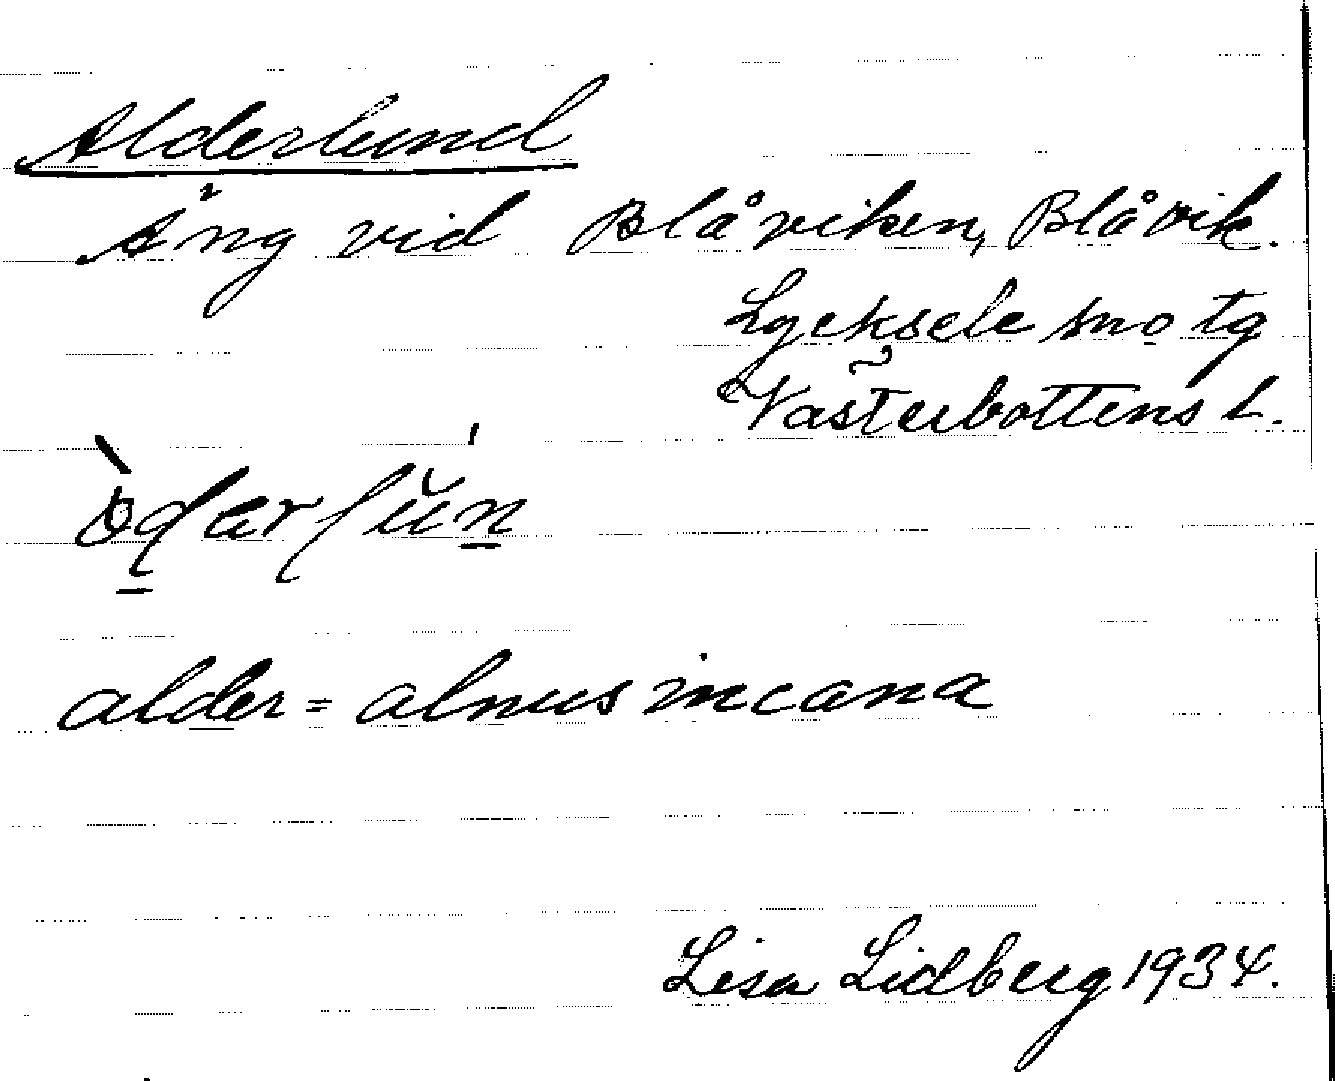 Alderlund
Äng vid Blåviken, Blåvik.
Lycksele
Västerbottens L.
alder = alnus incana
Lisa Lidberg 1934.